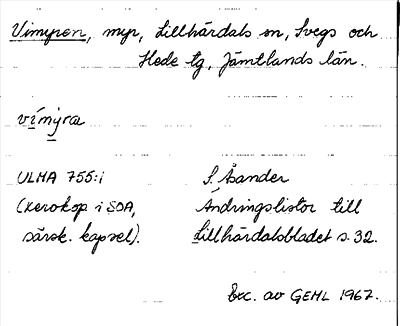 Vimyren, myr, Lillhärdals sn, Svegs och
Hede tg, Jämtlands län.
vímýra
ULMA 755:1
(xerokop i SOA,
särsk. kapsel).
S. Åsander
Ändringslistor till
Lillhärdalsbladet s. 32.
Exc. av GEHL 1967.